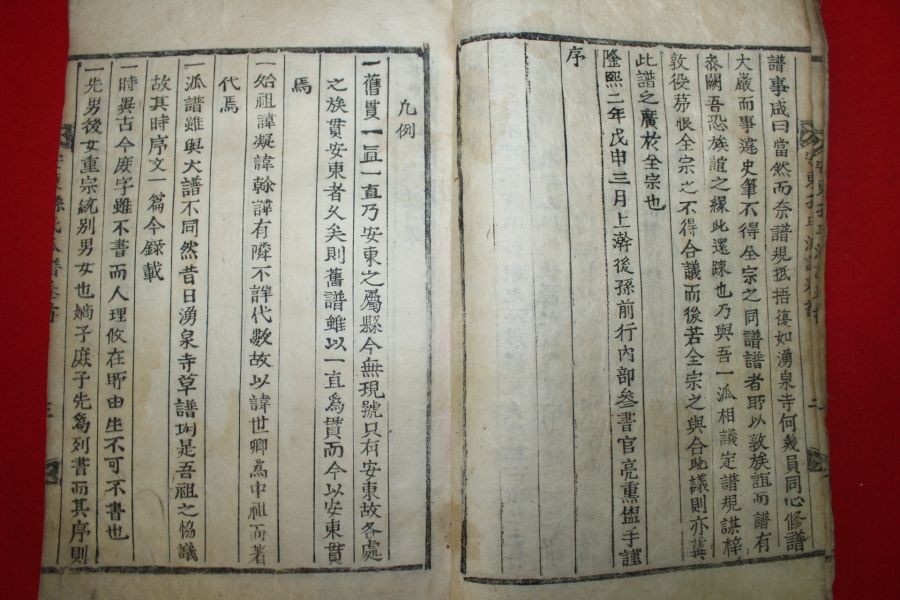 譜事成曰當然而奈譜規抵捂優如湧泉寺何幾員同心修譜
大嚴而事違史筆不得全宗之同譜譜者所以敦族誼而譜有
泰闕吾恐族誼之緣此還踈也乃與吾一派相議定譜規謀梓
敦役茀恨全宗之不得合議而後若全宗之與合此議則亦冀
此譜之廣於全宗也
隆熙二年戊申三月上澣後孫前行內部參書官亮熏盥手謹
序
凡例
一舊貫一直一直乃安東之屬縣今無現號只有安東故各處
之族貫安東者久矣則舊譜雖以一直爲貫而今以安東貫
焉
一始祖諱凝諱翰諱有隣不詳代數故以諱世卿爲中祖而著
代焉
一派譜雖與大譜不同然昔日湧泉寺草譜亦是吾祖之恊議
故其時序文一篇今錄載
一時異古今庶字雖不書而人理攸在所由生不可不書也
一先男後女重宗統別男女也嫡子庶子先爲列書而其序則